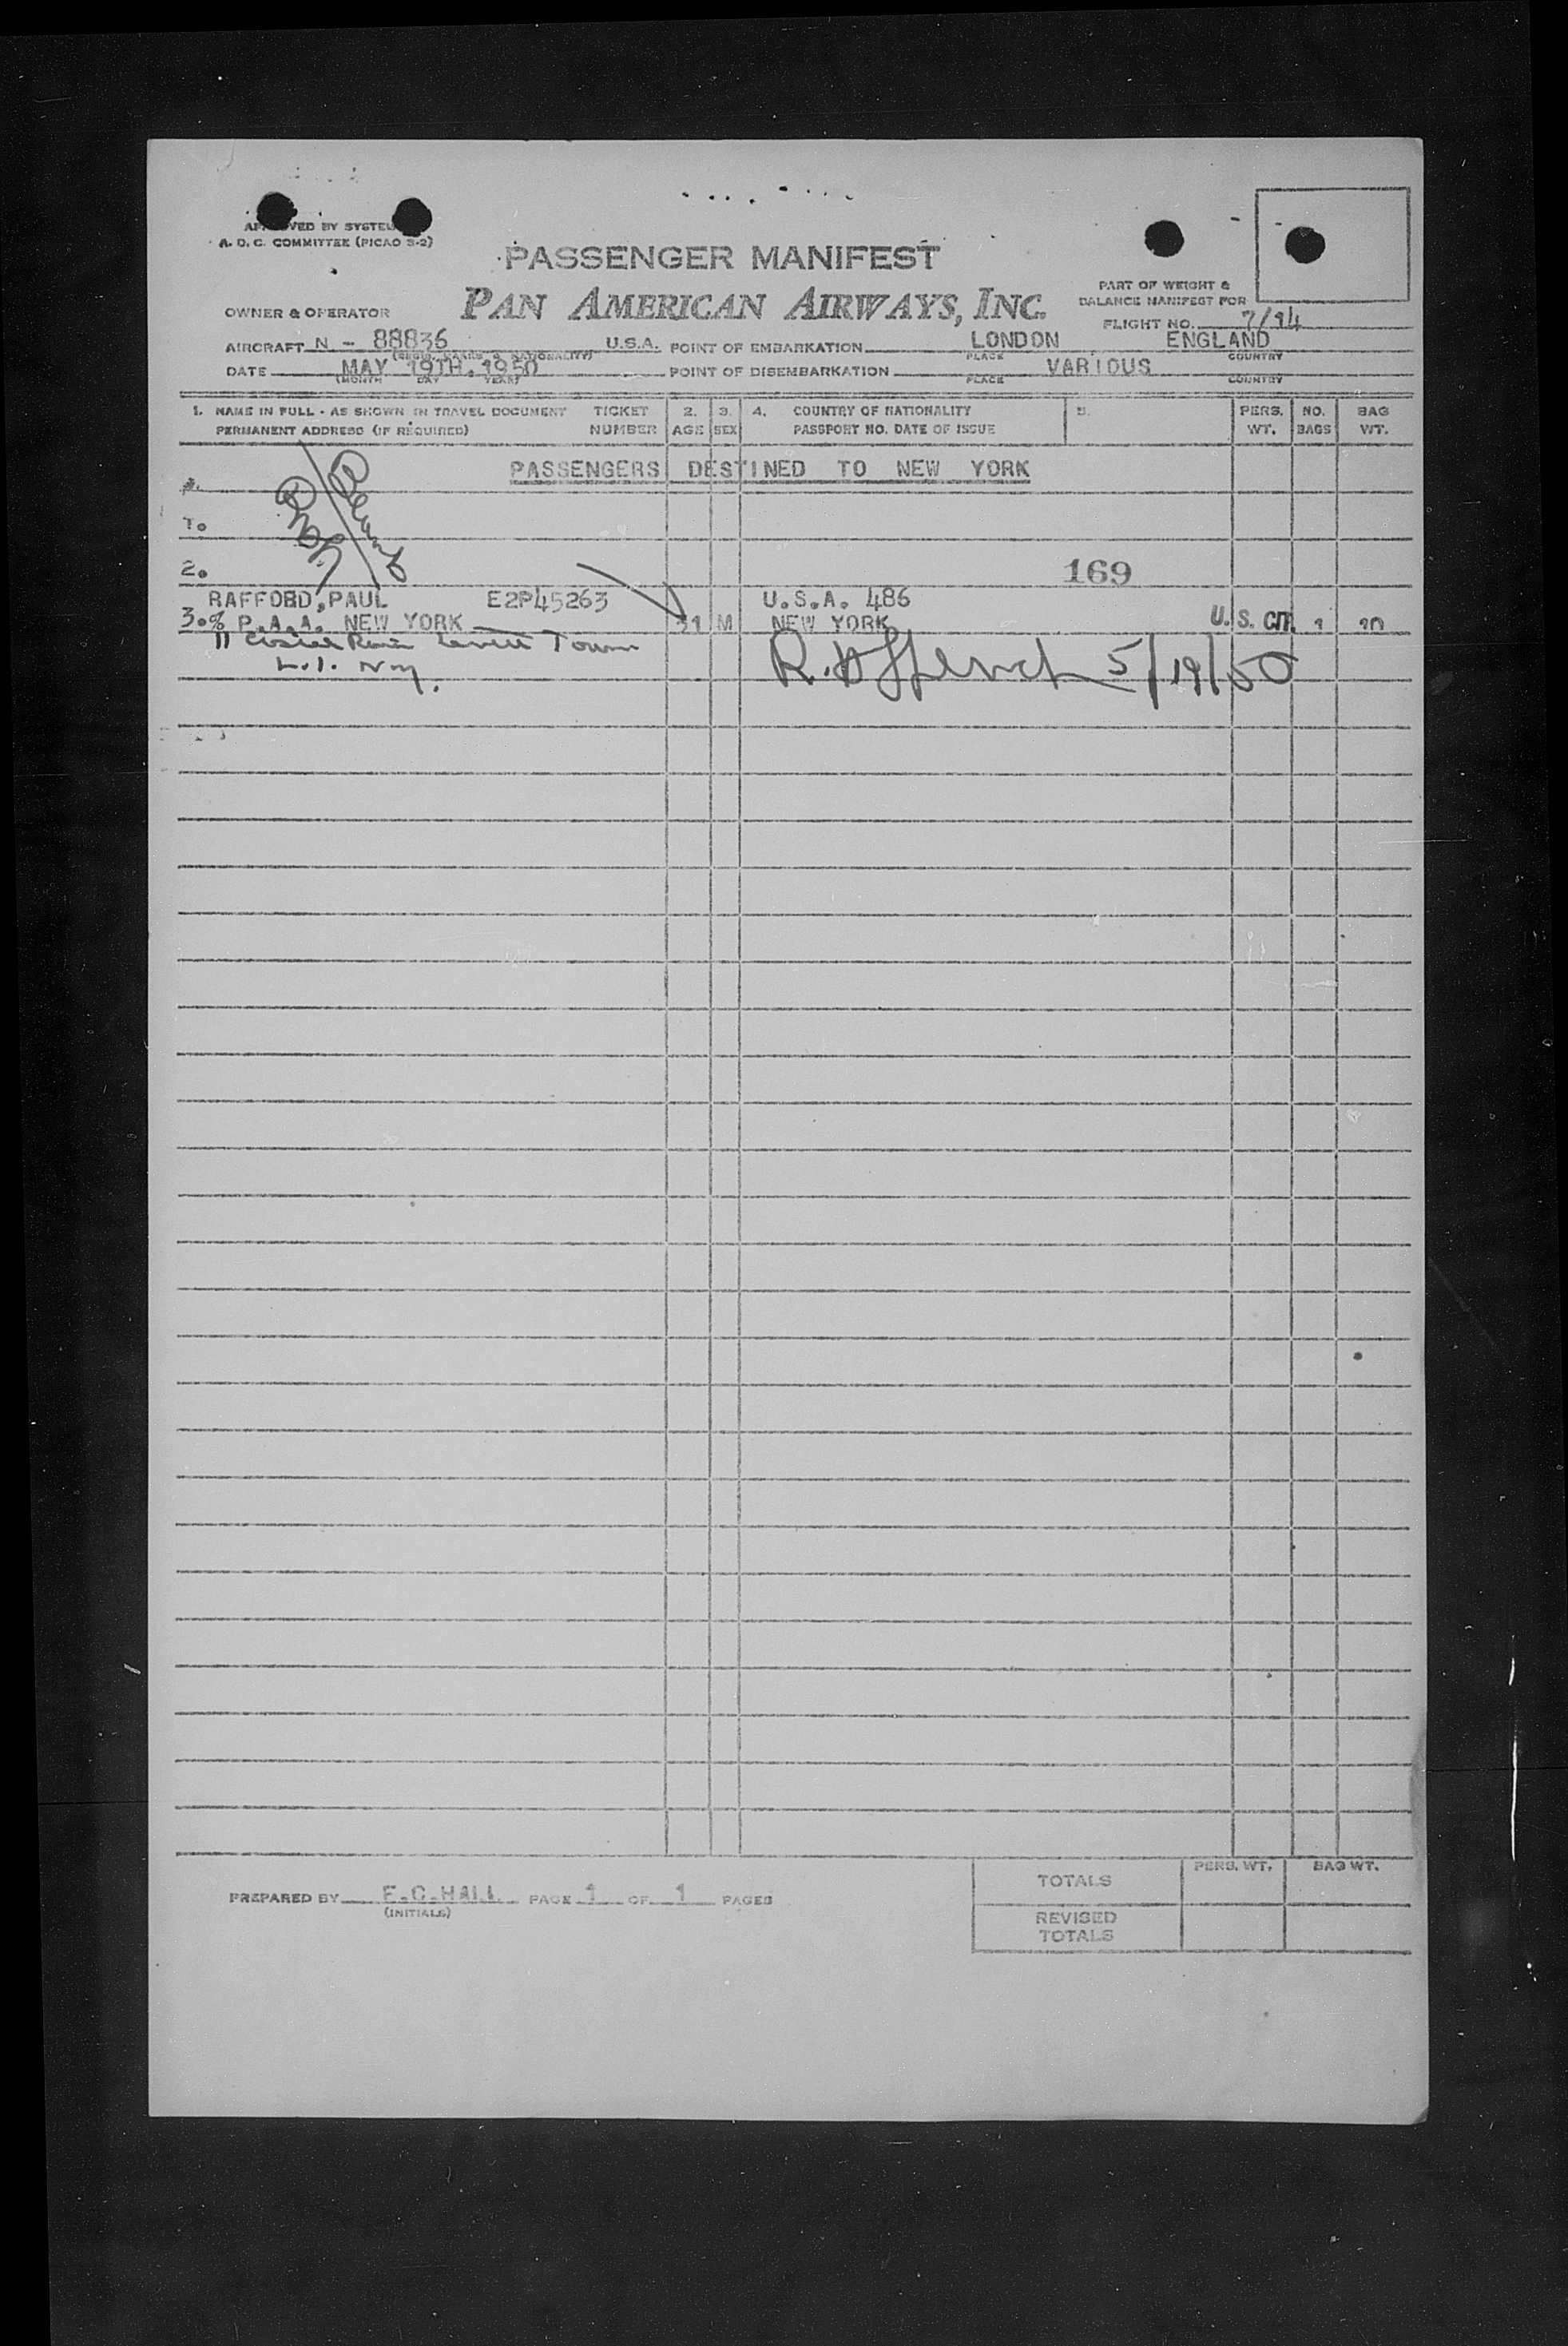 APPROVED BY SYSTEM
A. D. C. COMMITTEE (PICAO S-2)
PASSENGER MANIFEST
PAN AMERICAN AIRWAYS, INC.
PART OF WEIGHT &
BALANCE MANIFEST FOR
OWNER & OPERATOR
FLIGHT NO. 7/14
AIRCRAFT N - 88836 U.S.A. POINT OF EMBARKATION LONDON ENGLAND
(REGIS. MARKS & NATIONALITY) PLACE COUNTRY
DATE MAY 19TH, 1950 POINT OF DISEMBARKATION VARIOUS
(MONTH DAY YEAR) PLACE COUNTRY
1. NAME IN FULL - AS SHOWN IN TRAVEL DOCUMENT TICKET 2. 3. 4. COUNTRY OF NATIONALITY 5. PERS. NO. BAG
PERMANENT ADDRESS (IF REQUIRED) NUMBER AGE SEX PASSPORT NO. DATE OF ISSUE WT. BAGS WT.
PASSENGERS DESTINED TO NEW YORK
1.
2. 169
RAFFORD, PAUL E2P45263 U.S.A. 486
3.% P.A.A. NEW YORK 31 M NEW YORK U.S. CIT. 1 20
11 Levitt Town
L.I. N.Y. 5/19/50
PREPARED BY E.C.HALL PAGE 1 OF 1 PAGES
(INITIALS)
PERS. WT. BAG WT.
TOTALS
REVISED
TOTALS